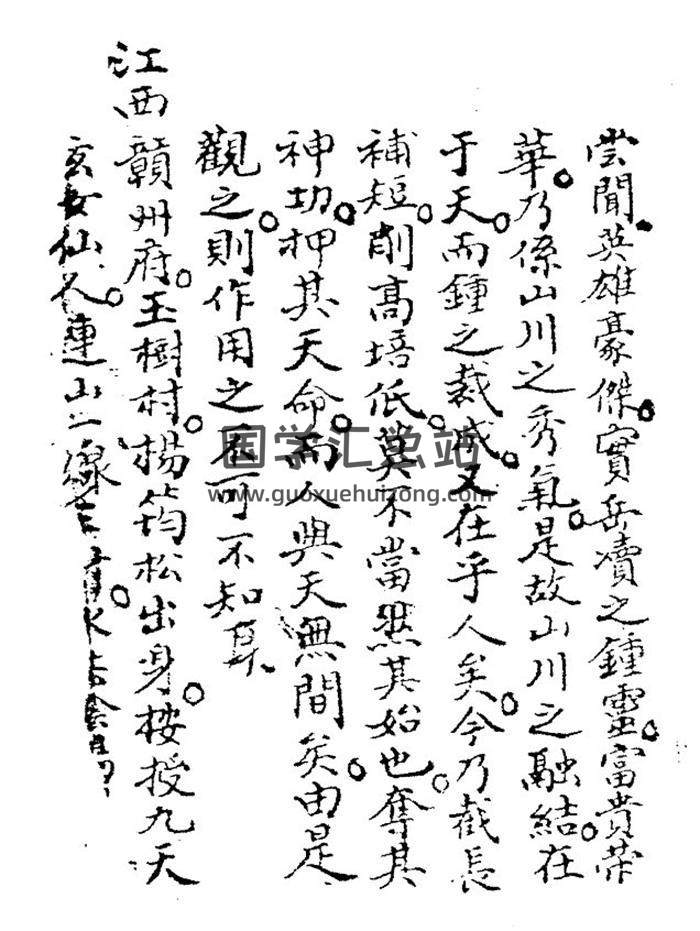 尝聞英雄豪傑實岳瀆之鍾靈富貴荣
華乃係山川之秀氣是故山川之融結在
于天而鍾之裁成又在乎人矣今乃截長
補短削高培低莫不當然其始也奪其
神功押其天命而人與天無間矣由是
觀之則作用之不可不知耳
江西贛州府玉樹村楊筠松出身桉授九天
玄女仙人連山一線
国学汇总站
www.guoxuehuizong.com